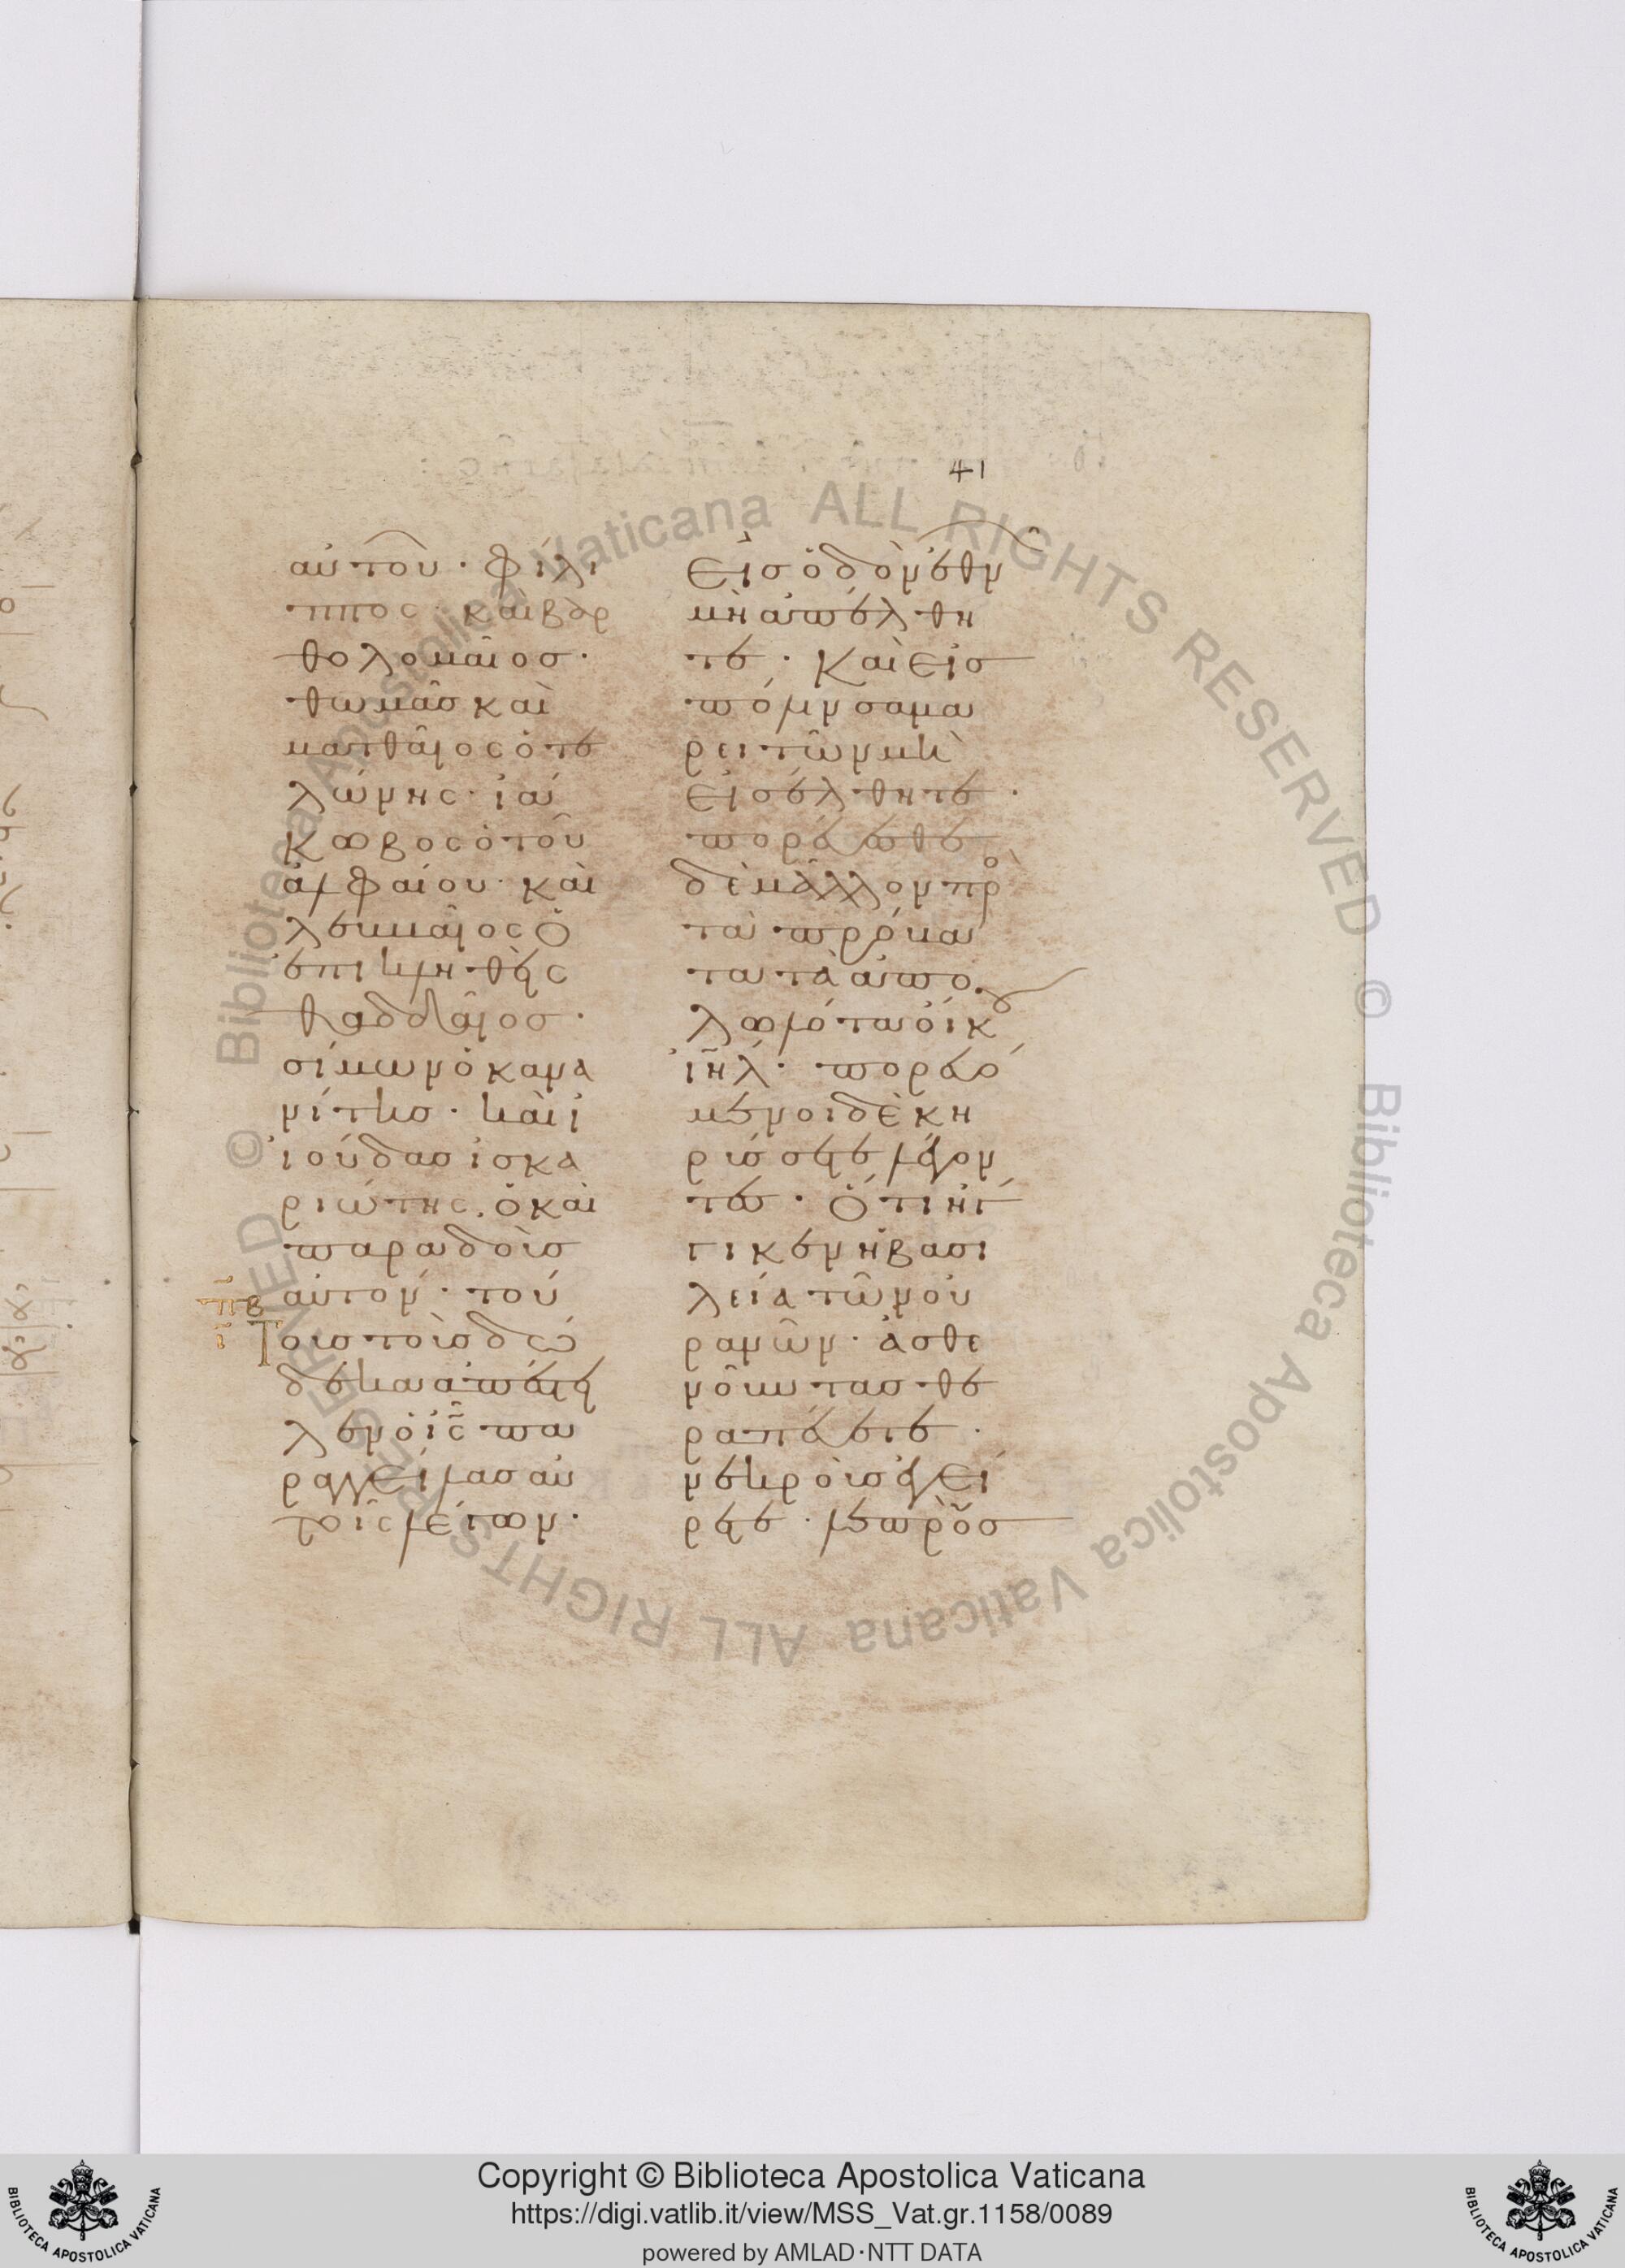 41
αὐτοῦ · Φίλι
ππος · καὶ βαρ
θολομαῖοσ ·
θωμᾶσ καὶ
ματθαῖος ὁ τε
λώνης · ἰά
κωβος ὁ τοῦ
ἀλφαίου · καὶ
λεββαῖος ὁ
ἐπικληθεὶς
θαδδαῖοσ ·
σίμων ὁ κανα
νίτησ · καὶ ϊ
ἰούδασ ἰσκα
ριώτης · ὁ καὶ
παραδοὺσ
αὐτόν · του
πβ
ι
Τουσ τοὺσ δώ
δεκα ἀπέστει
λεν ὁ ἰς παρ
ραγγείλασ αὐ
τοῖς λέγων ·
Εἰσ ὁδὸν ἐθνῶ
μὴ ἀπέλθη
τε · Καὶ εἰσ
πόλιν σαμα
ρειτῶν μὴ
εἰσέλθητε ·
πορεύεσθε
δὲ μᾶλλον πρὸ
τὰ πρόβα
τα τὰ ἀπο
λωλότα οἴκου
ἰηλ · πορευό
μενοι δὲ κη
ρύσσετε λέγον
τεσ · Ὅτι ἤγ
γικεν ἡ βασι
λεία τῶν οὐ
ρανῶν · ἀσθε
νοῦντασ θε
ραπεύετε ·
νεκροὺσ ἐγεί
ρετε · λεπροὺσ
Biblioteca Apostolica Vaticana ALL RIGHTS RESERVED ©
Biblioteca Apostolica Vaticana ALL RIGHTS RESERVED ©
Copyright © Biblioteca Apostolica Vaticana
https://digi.vatlib.it/view/MSS_Vat.gr.1158/0089
powered by AMLAD·NTT DATA
BIBLIOTECA APOSTOLICA VATICANA
BIBLIOTECA APOSTOLICA VATICANA